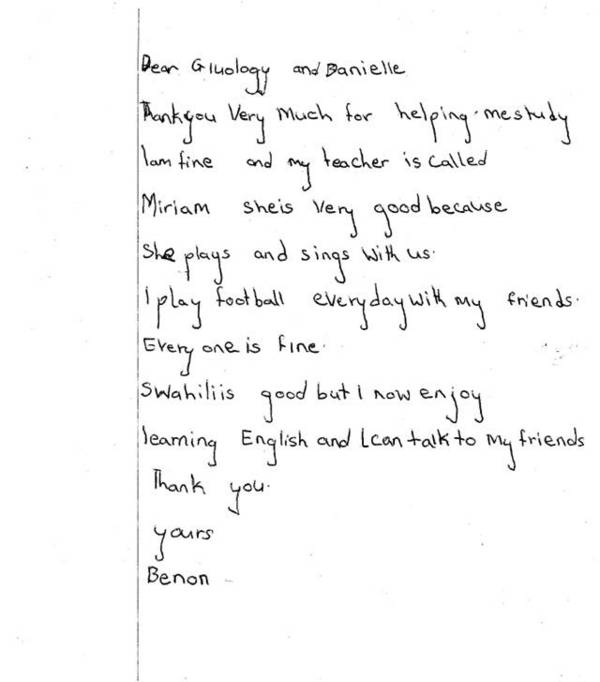 Dear Gluology and Danielle
Thankyou Very Much for helping. mestudy
Iam fine and my teacher is Called
Miriam sheis Very good because
She plays and sings With us.
I play football everyday with my friends.
Every one is fine.
Swahiliis good but I now enjoy
learning English and I can talk to My friends
Thank you.
yours
Benon